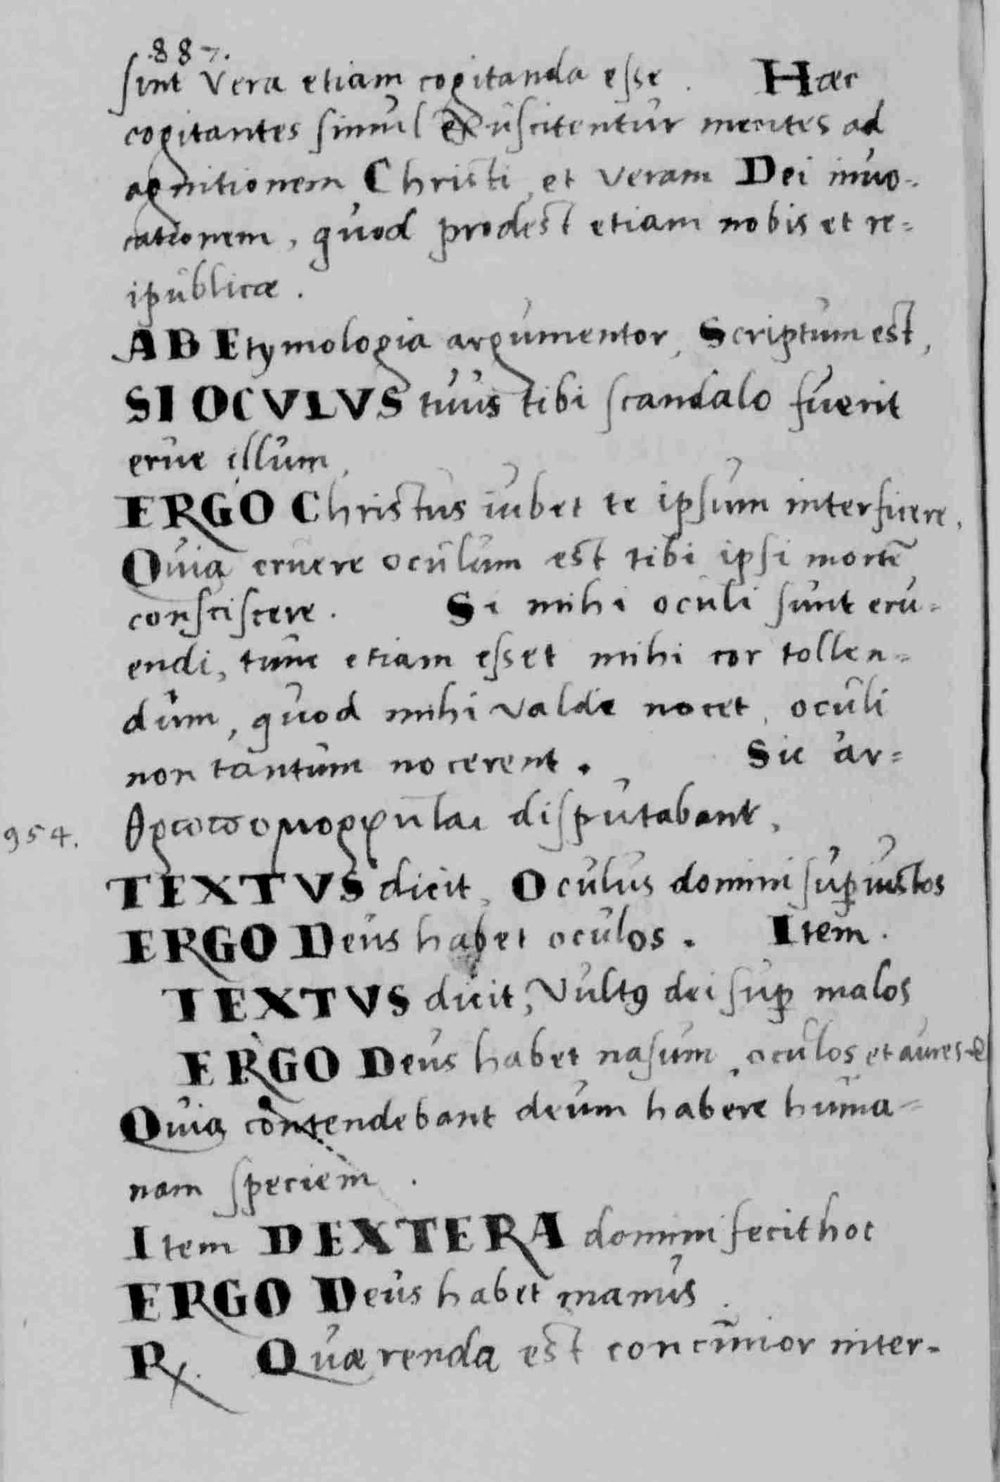 .887.
sint Vera etiam cogitanda esse. Hæc
cogitantes simul exuscitentur mentes ad
agnitionem Christi, et veram Dei inuo-
cationem, quod prodest etiam nobis et re-
ipublicæ.
AB Etymologia argumentor, Scriptum est,
SI OCVLVS tuus tibi scandalo fuerit
erue illum,
ERGO Christus iubet te ipsum interficere,
Quia eruere oculum est tibi ipsi mortē
consciscere. Si mihi oculi sunt eru-
endi, tunc etiam esset mihi cor tollen-
dum, quod mihi valde nocet, oculi
non tantum nocerent. Sic ar=
954. disputabant,
TEXTVS dicit, Oculus domini suꝑ iustos
ERGO Deus habet oculos. Item.
TEXTVS dicit, Vultꝯ dei suꝑ malos
ERGO Deus habet nasum, oculos et aures
Quia contendebant deum habere huma-
nam speciem.
Item DEXTERA domini fecit hoc
ERGO Deus habet manus.
℞. Quærenda est concinnior inter-